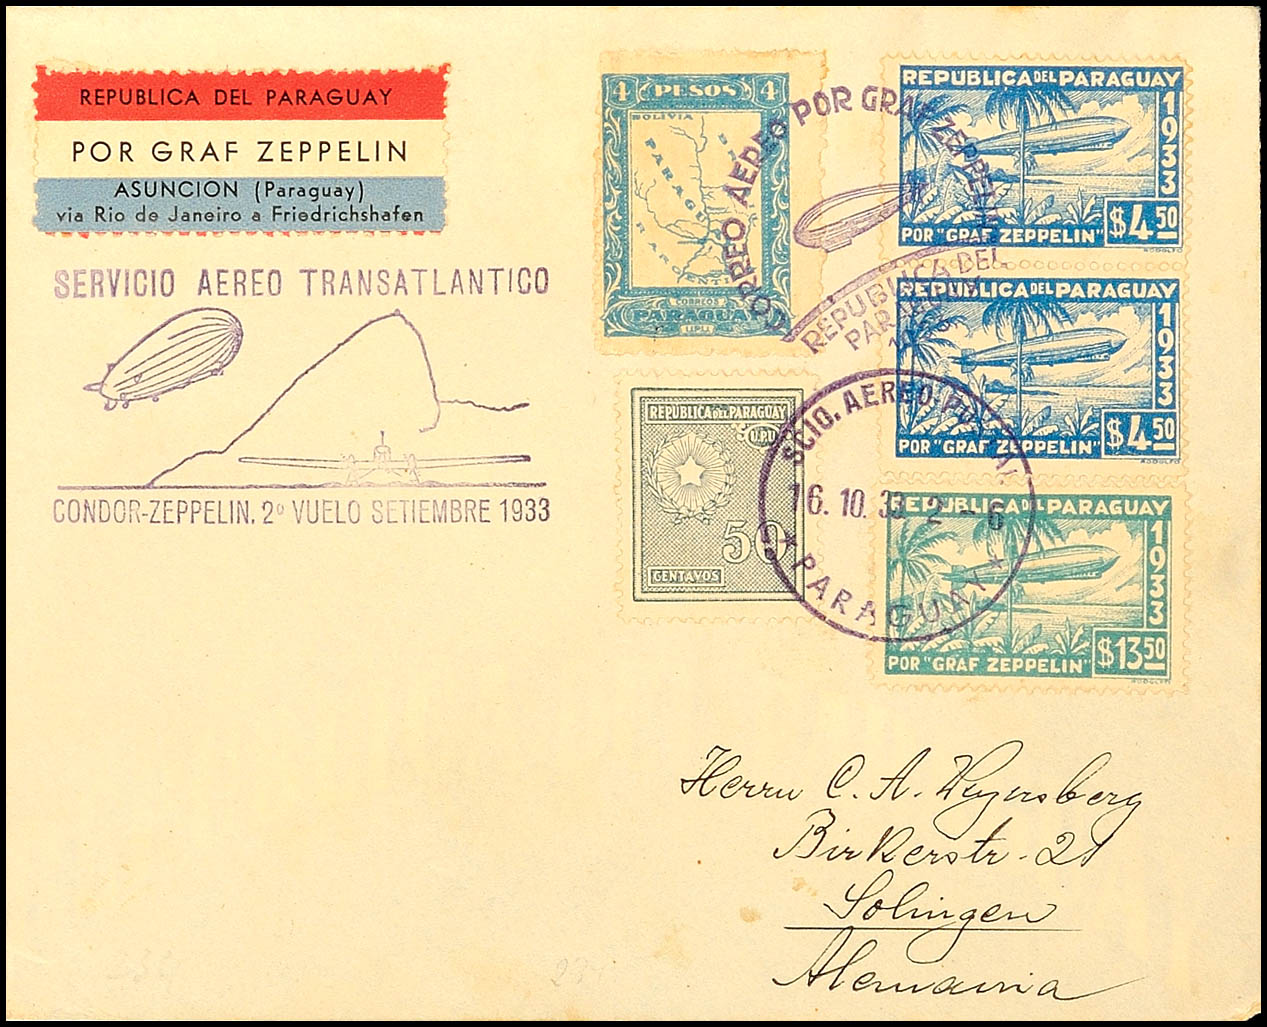 REPUBLICA DEL PARAGUAY
POR GRAF ZEPPELIN
ASUNCION (Paraguay)
via Rio de Janeiro a Friedrichshafen
SERVICIO AEREO TRANSATLANTICO
CONDOR-ZEPPELIN. 2º VUELO SETIEMBRE 1933
4 PESOS 4
BOLIVIA
PARAGUAY
CORREOS
PARAGUAY
UPU
CORREO AEREO POR GRAF ZEPPELIN
REPUBLICA DEL
PARAGUAY
REPUBLICA DEL PARAGUAY
1933
$4.50
POR "GRAF ZEPPELIN"
RODOLFO
REPUBLICA DEL PARAGUAY
1933
$4.50
POR "GRAF ZEPPELIN"
RODOLFO
REPUBLICA DEL PARAGUAY
U.P.U.
50
CENTAVOS
SCIO. AEREO. POSTAL
16. 10. 33 2 - 6
PARAGUAY
REPUBLICA DEL PARAGUAY
1933
$13.50
POR "GRAF ZEPPELIN"
RODOLFO
Herrn C. A. Weyersberg
Birkerstr. 21
Solingen
Alemania